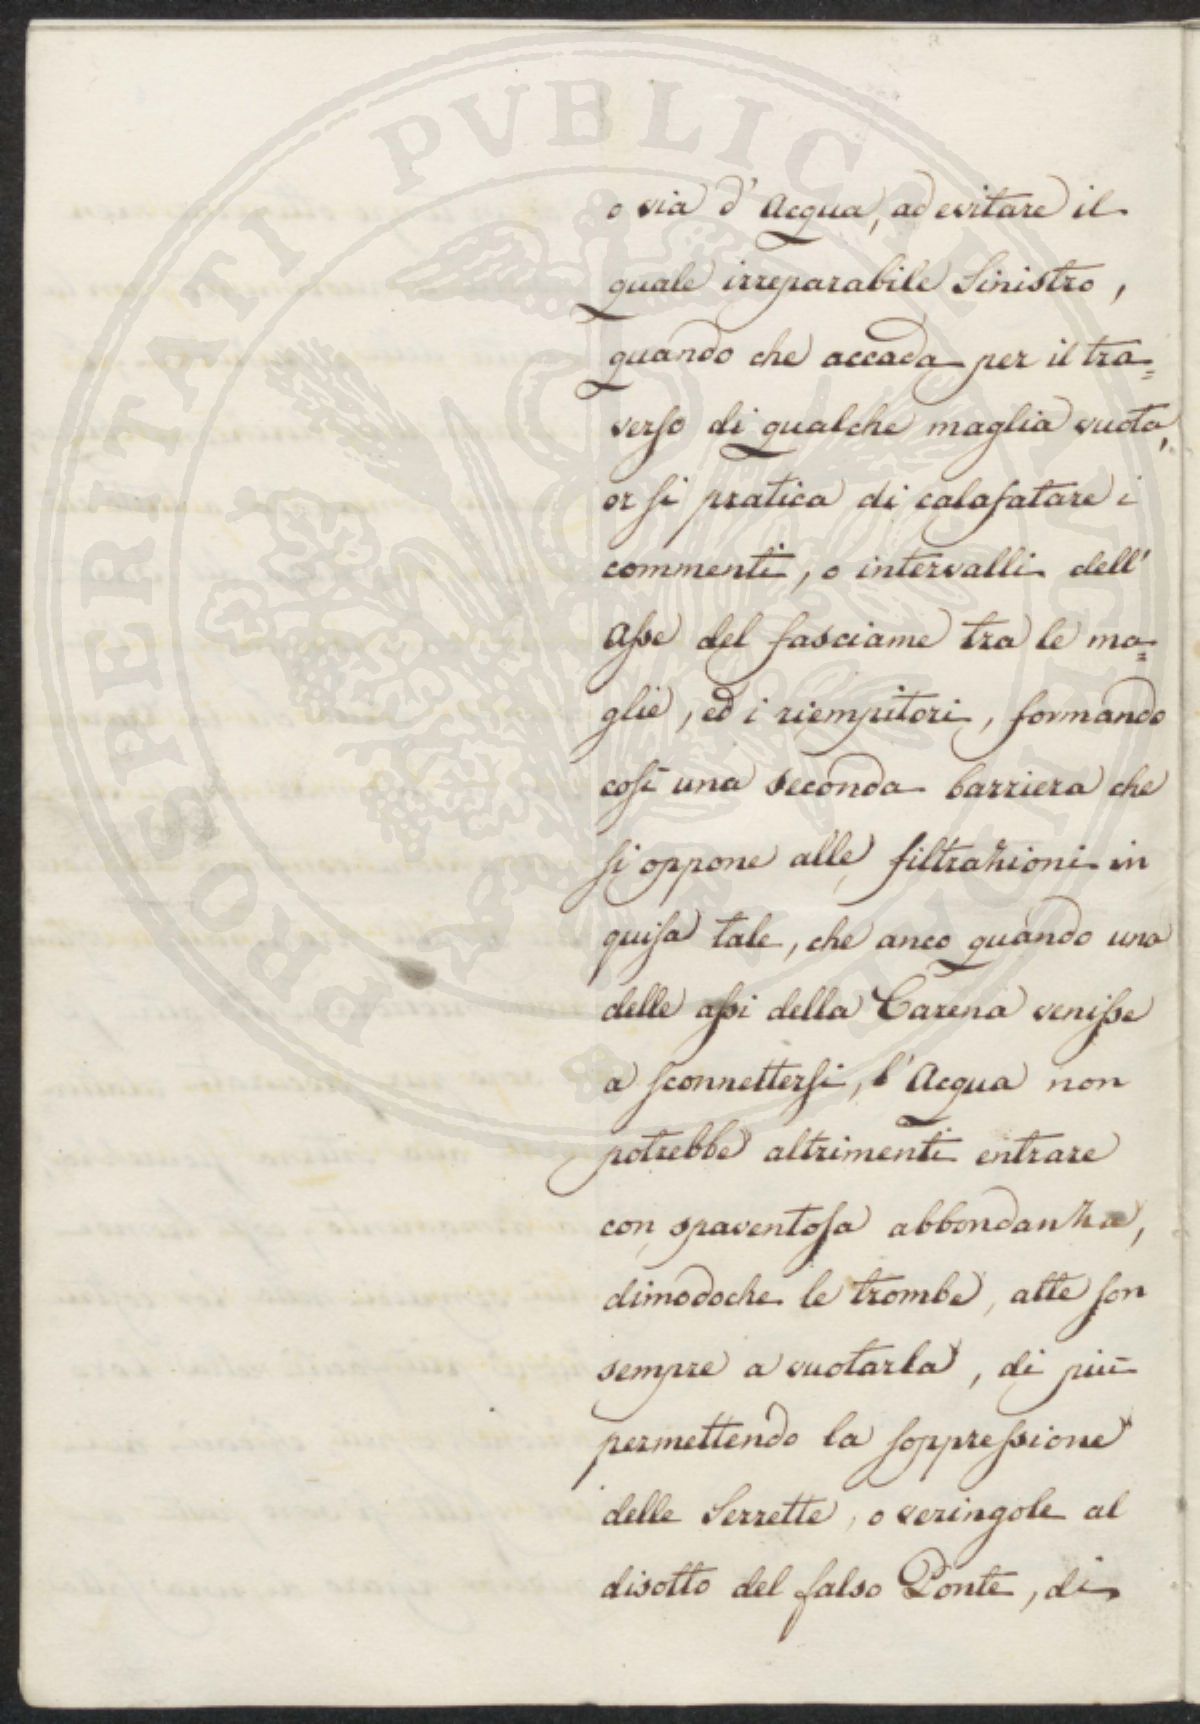 PROSPERITATI PVBLICAE AVGENDAE
o via d'Acqua, ad evitare il
quale irreparabile Sinistro,
quando che accada per il tra=
verso di qualche maglia vuota,
or si pratica di calafatare i
commenti, o intervalli dell'
Asse del fasciame tra le ma=
glie, ed i riempitori, formando
così una seconda barriera che
si oppone alle filtrazioni in
guisa tale, che anco quando una
delle assi della Carena venisse
a sconnettersi, l'Acqua non
potrebbe altrimenti entrare
con spaventosa abbondanza,
dimodoche le trombe, atte son
sempre a vuotarla, di più
permettendo la soppressione
delle Serrette, o veringole al
disotto del falso Ponte, di